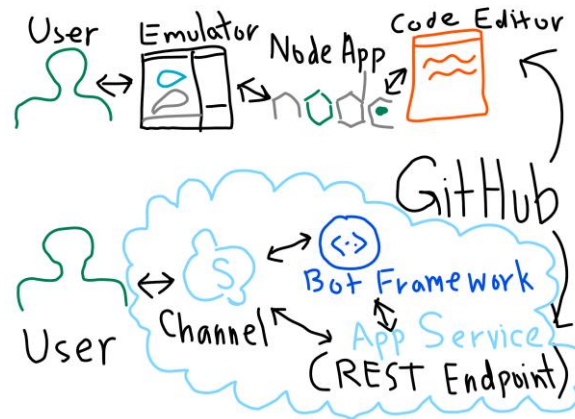 User
Emulator
Node App
Code Editor
node
GitHub
User
S
Channel
<·>
Bot Framework
App Service
(REST Endpoint)